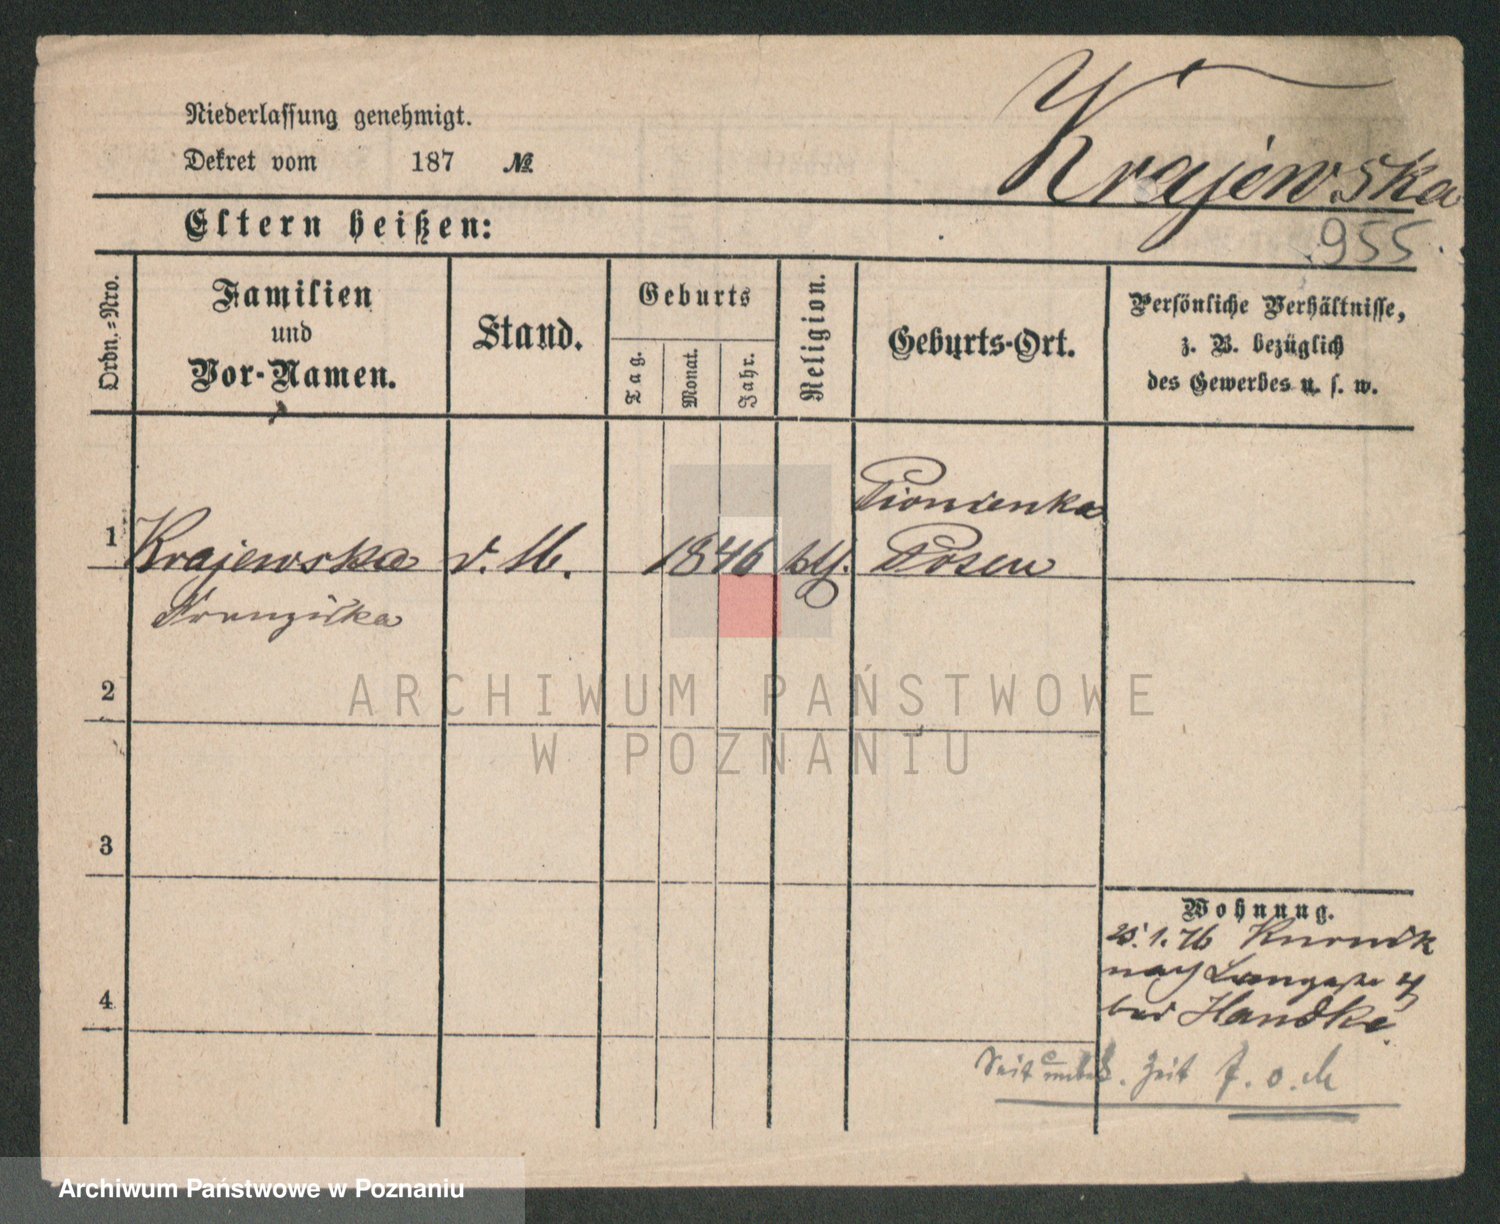 Krajewska
Niederlassung genehmigt.
Dekret vom 187 №
Eltern heißen:
955.
Ordn.=Nro.
Familien
und
Vor-Namen.
Stand.
Geburts
Tag.
Monat.
Jahr.
Religion.
Geburts-Ort.
Persönliche Verhältnisse,
z. B. bezüglich
des Gewerbes u. s. w.
Pionienka
1 Krajewska d. M. 1846 kth. Posen
Franziska
2
ARCHIWUM PAŃSTWOWE
W POZNANIU
3
Wohnung.
25.1.76 Kurnik
nach Langestr 4
bei Handke.
4
Seit unbek. Zeit f. o. M
Archiwum Państwowe w Poznaniu